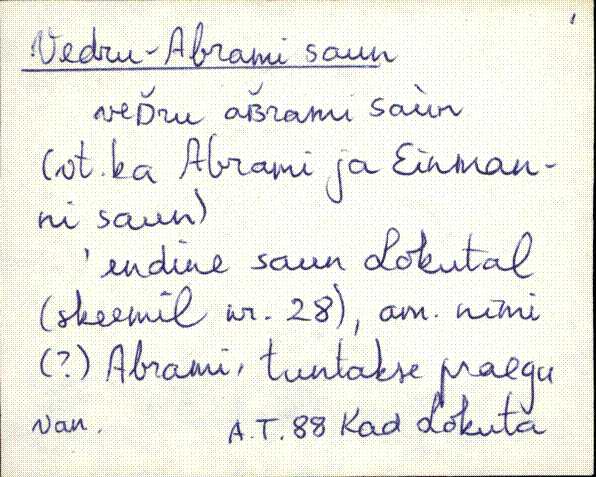 Vedru-Abrami saun
veD̆ru aB̆rami saùn
(vt. ka Abrami ja Einman-
ni saun)
'endine saun Lokutal
(skeemil nr. 28), am. nimi
(?) Abrami, tuntakse praegu
van. A.T. 88 Kad Lokuta